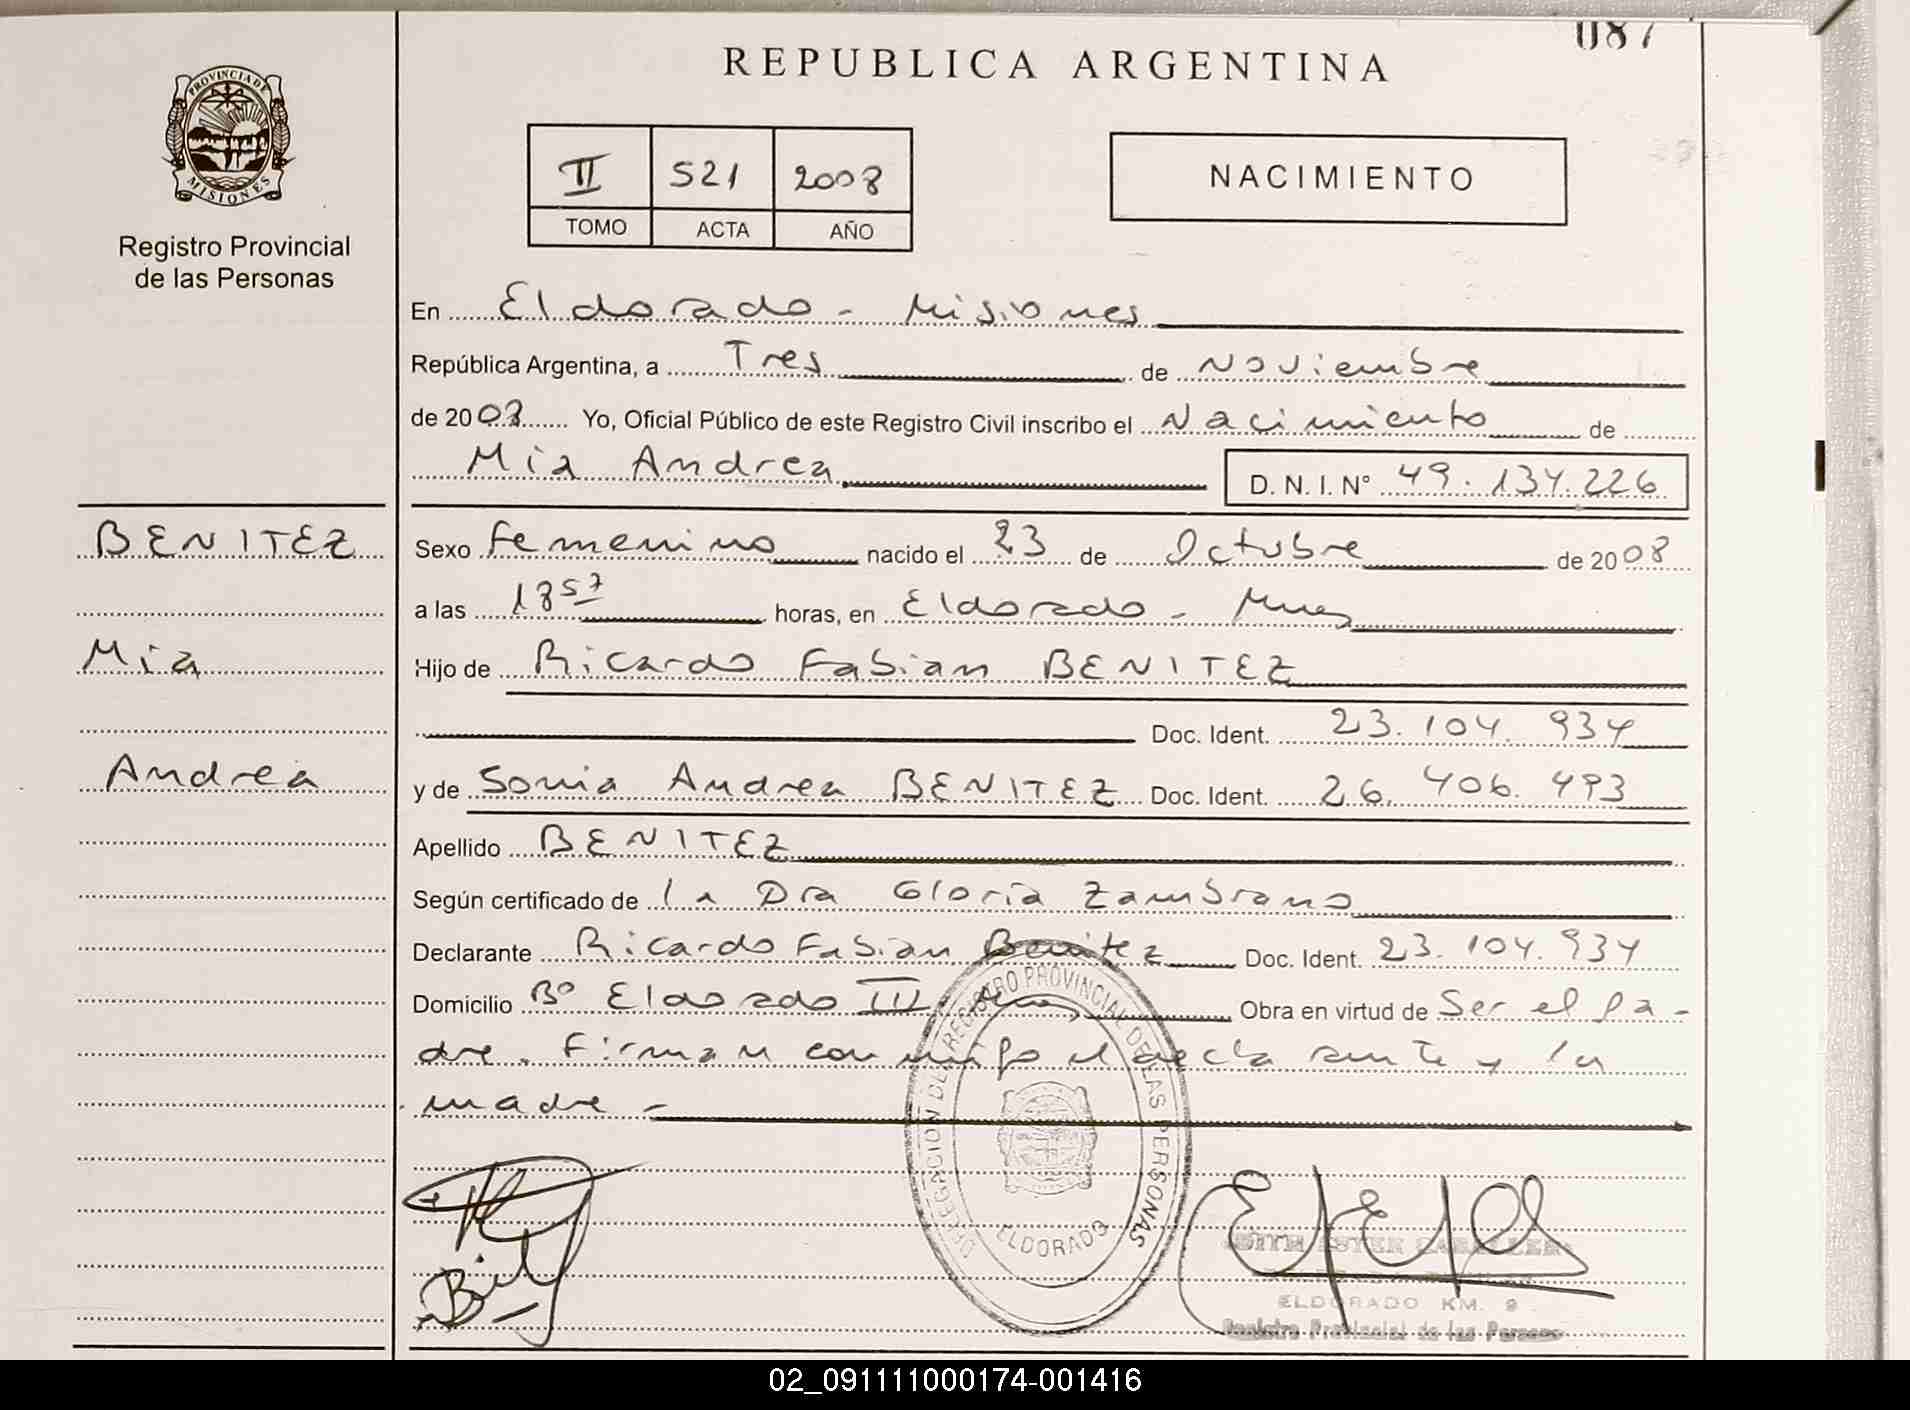 087
REPUBLICA ARGENTINA
PROVINCIA DE
MISIONES
Registro Provincial
de las Personas
II 521 2008
TOMO ACTA AÑO
NACIMIENTO
En Eldorado - Misiones
República Argentina, a Tres de Noviembre
de 2008 Yo, Oficial Público de este Registro Civil inscribo el Nacimiento de
Mia Andrea D. N. I. N° 49.134.226
BENITEZ
Mia
Andrea
Sexo Femenino nacido el 23 de Octubre de 2008
a las 18 57 horas, en Eldorado - Mnes
Hijo de Ricardo Fabian BENITEZ
Doc. Ident. 23.104.934
y de Sonia Andrea BENITEZ Doc. Ident. 26.406.493
Apellido BENITEZ
Según certificado de la Dra Gloria Zambrano
Declarante Ricardo Fabian Benitez Doc. Ident. 23.104.934
Domicilio B° Eldorado III Mnes Obra en virtud de Ser el Pa-
dre. Firman conmigo el declarante y la
madre -
DELEGACION DEL REGISTRO PROVINCIAL DE LAS PERSONAS
ELDORADO
ESTER
ELDORADO KM. 9
Registro Provincial de las Personas
02_091111000174-001416